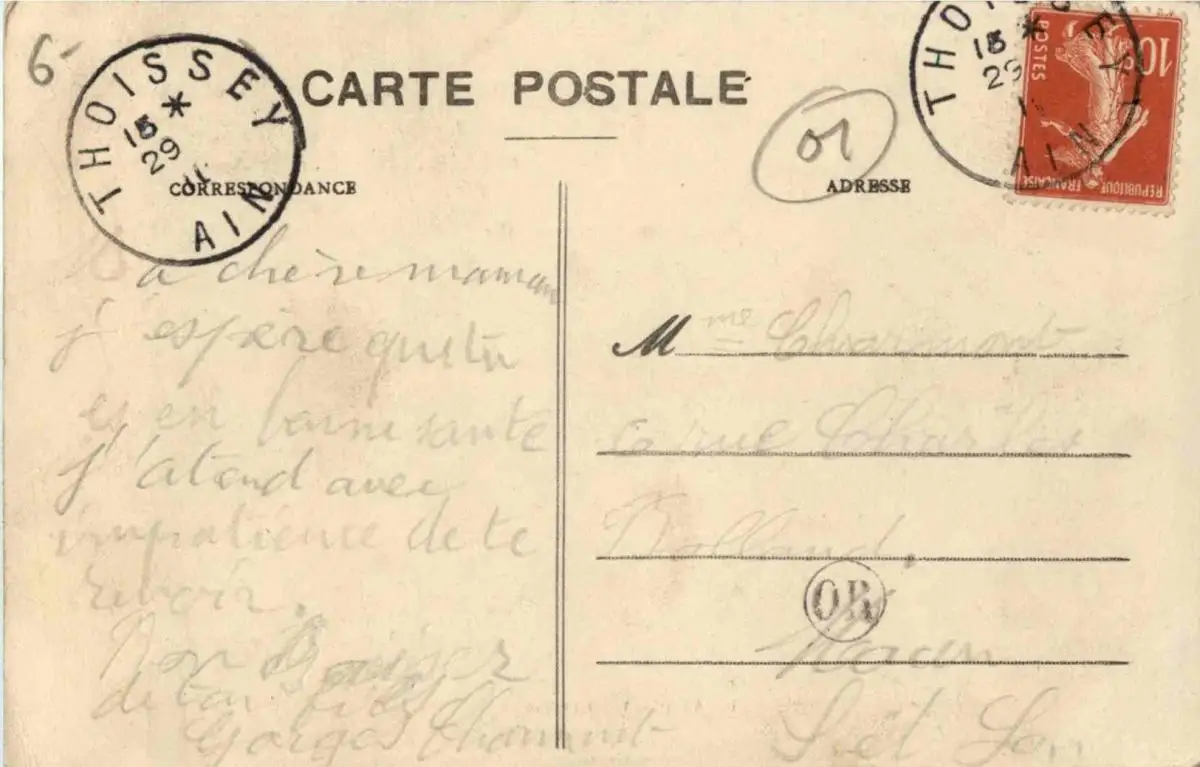 6-
THOISSEY
15 *
29
11
AIN
CARTE POSTALE
01
THOISSEY
15 *
29
11
AIN
10c
POSTES
REPUBLIQUE FRANÇAISE
CORRESPONDANCE
ADRESSE
Ma chère maman
j'espère que tu
es en bonne santé
J'atend avec
impatience de te
revoir.
Bon Baiser
de ton fils
Gorges
Mme
rue Charles
Rolland.
OR
Macon
S. et L